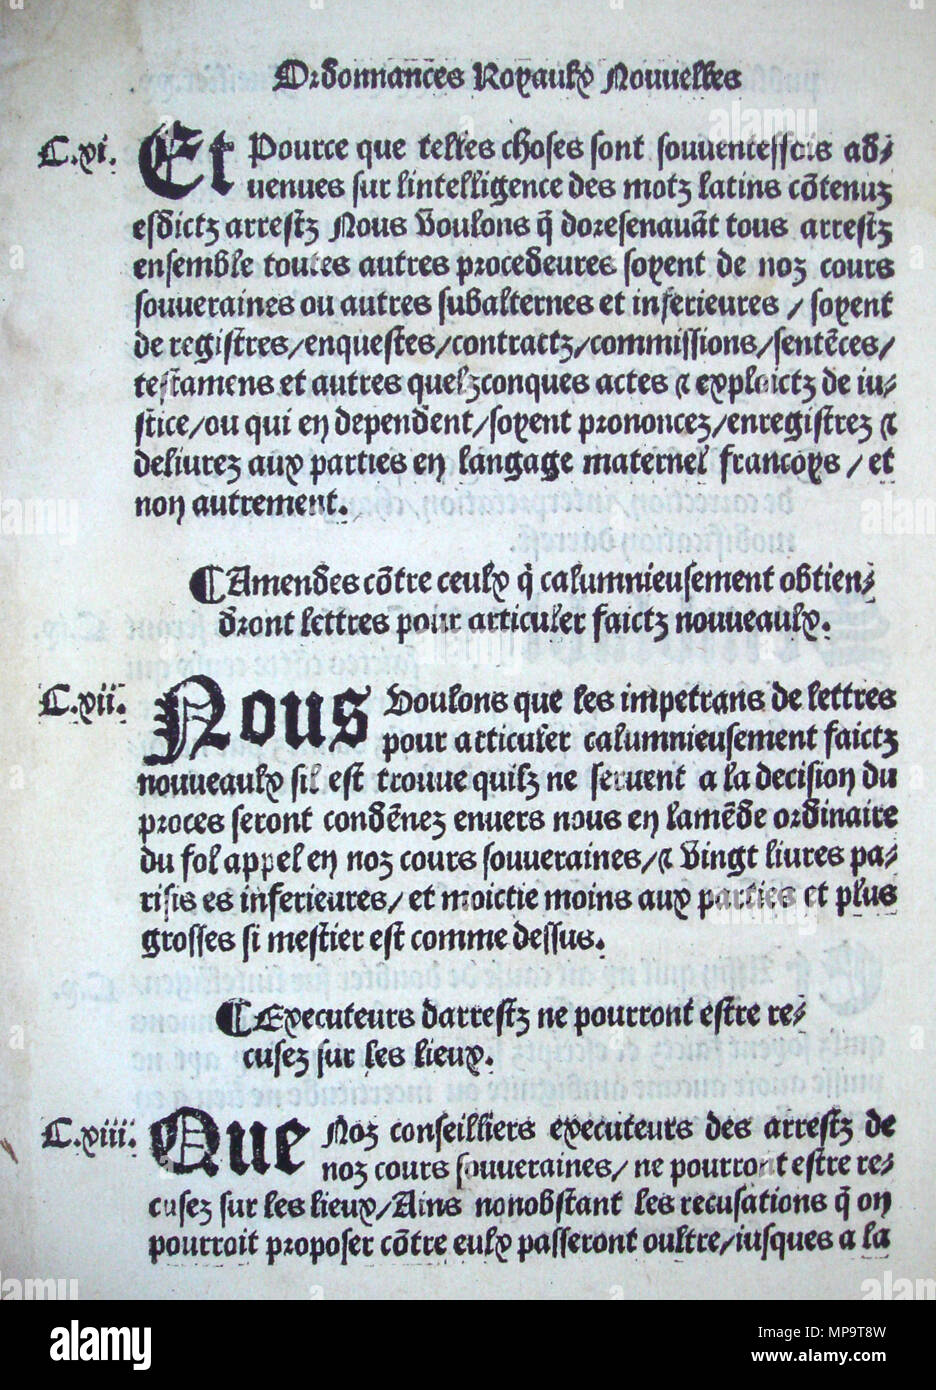 Ordonnances Royaulx Nouuelles
C.xi. Et Pource que telles choses sont souuenteffois ad/
uenues sur lintelligence des motz latins cõtenuz
esdictz arrestz Nous Voulons q̃ doresenauãt tous arrestz
ensemble toutes autres procedeures soyent de noz cours
souueraines ou autres subalternes et inferieures / soyent
de registres/enquestes/contractz/commissions/sentẽces/
testamens et autres quelzconques actes & exploictz de iu/
stice/ou qui en dependent/soyent prononcez/enregistrez &
deliurez aux parties en langage maternel francoys / et
non autrement.
¶Amendes cõtre ceulx q̃ calumnieusement obtien/
dront lettres pour articuler faictz nouueaulx.
C.xii. Nous Voulons que les impetrans de lettres
pour articuler calumnieusement faictz
nouueaulx sil est trouue quilz ne seruent a la decision du
proces seront condẽnez enuers nous en lamẽde ordinaire
du fol appel en noz cours souueraines/& Vingt liures pa/
risis es inferieures/et moictie moins aux parties et plus
grosses si mestier est comme dessus.
¶Executeurs darrestz ne pourront estre re/
cusez sur les lieux.
C.xiii. Que Noz conseilliers executeurs des arrestz de
noz cours souueraines/ne pourront estre re/
cusez sur les lieux/Ains nonobstant les recusations q̃ on
pourroit proposer cõtre eulx passeront oultre/iusques a la
alamy
Image ID: MP9T8W
www.alamy.com